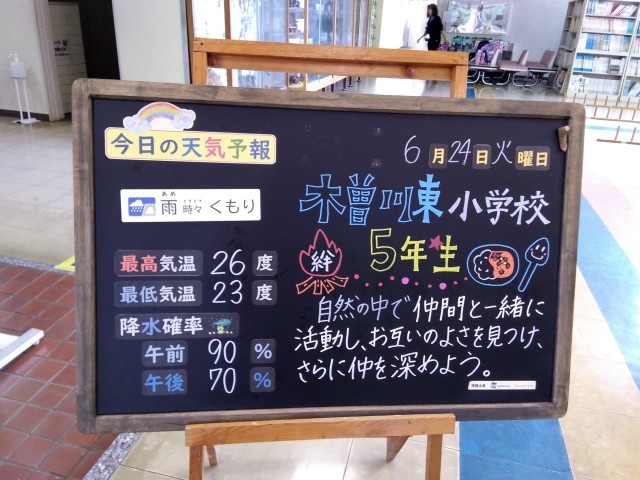 今日の天気予報
6月24日火曜日
あめ ときどき
雨 時々 くもり
木曽川東小学校
5年生
絆
最高気温 26度
最低気温 23度
降水確率…
午前 90%
午後 70%
自然の中で仲間と一緒に
活動し、お互いのよさを見つけ、
さらに仲を深めよう。